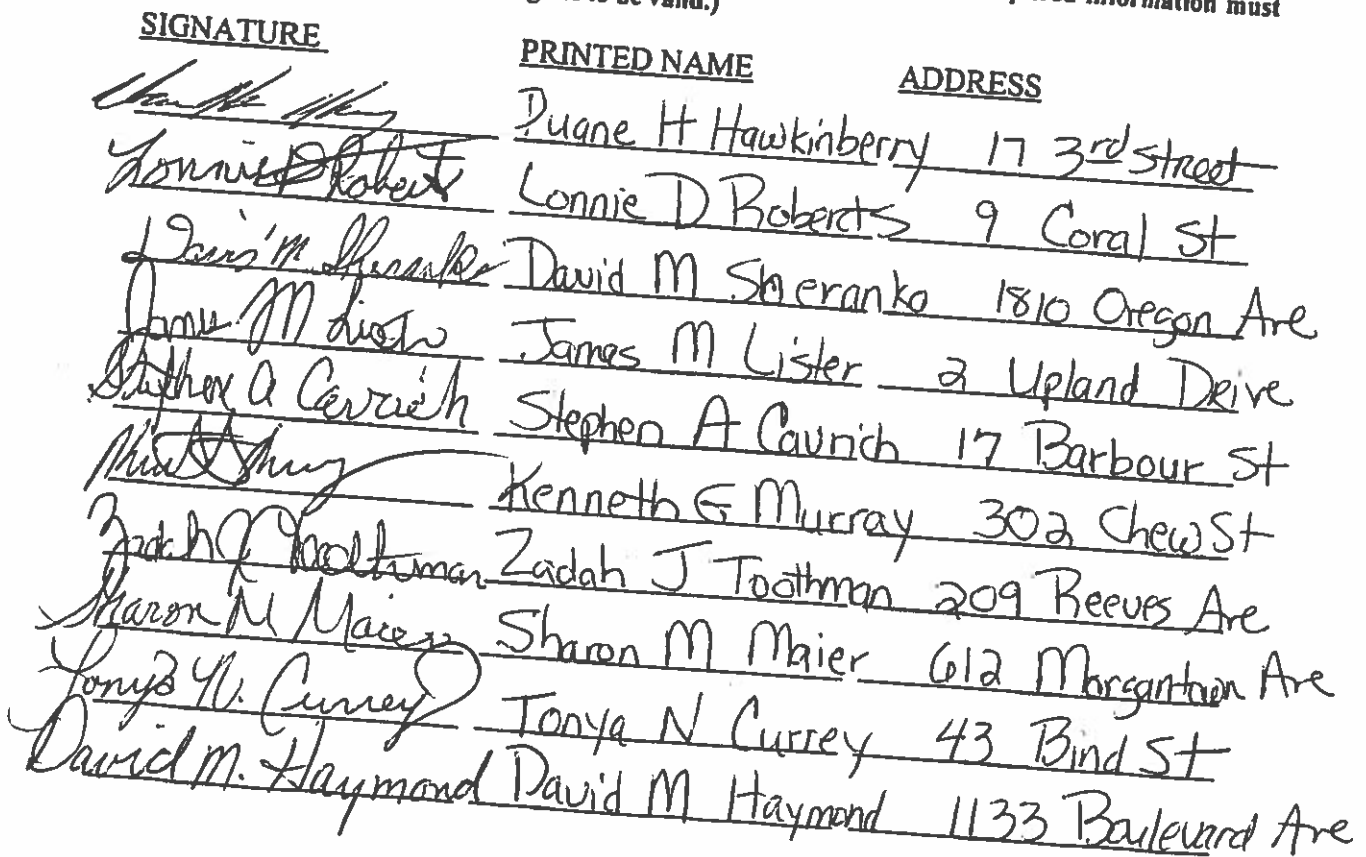 to be valid.) information must
SIGNATURE PRINTED NAME ADDRESS
Duane H Hawkinberry 17 3rd Street
Lonnie D Roberts Lonnie D Roberts 9 Coral St
David M Sheranko David M Sheranko 1810 Oregon Ave
James M Lister James M Lister 2 Upland Drive
Stephen A Cavrich Stephen A Cavrich 17 Barbour St
Kenneth G Murray 302 Chew St
Zadah J Toothman Zadah J Toothman 209 Reeves Ave
Sharon M Maier Sharon M Maier 612 Morgantown Ave
Tonya N. Currey Tonya N Currey 43 Bind St
David M. Haymond David M Haymond 1133 Boulevard Ave